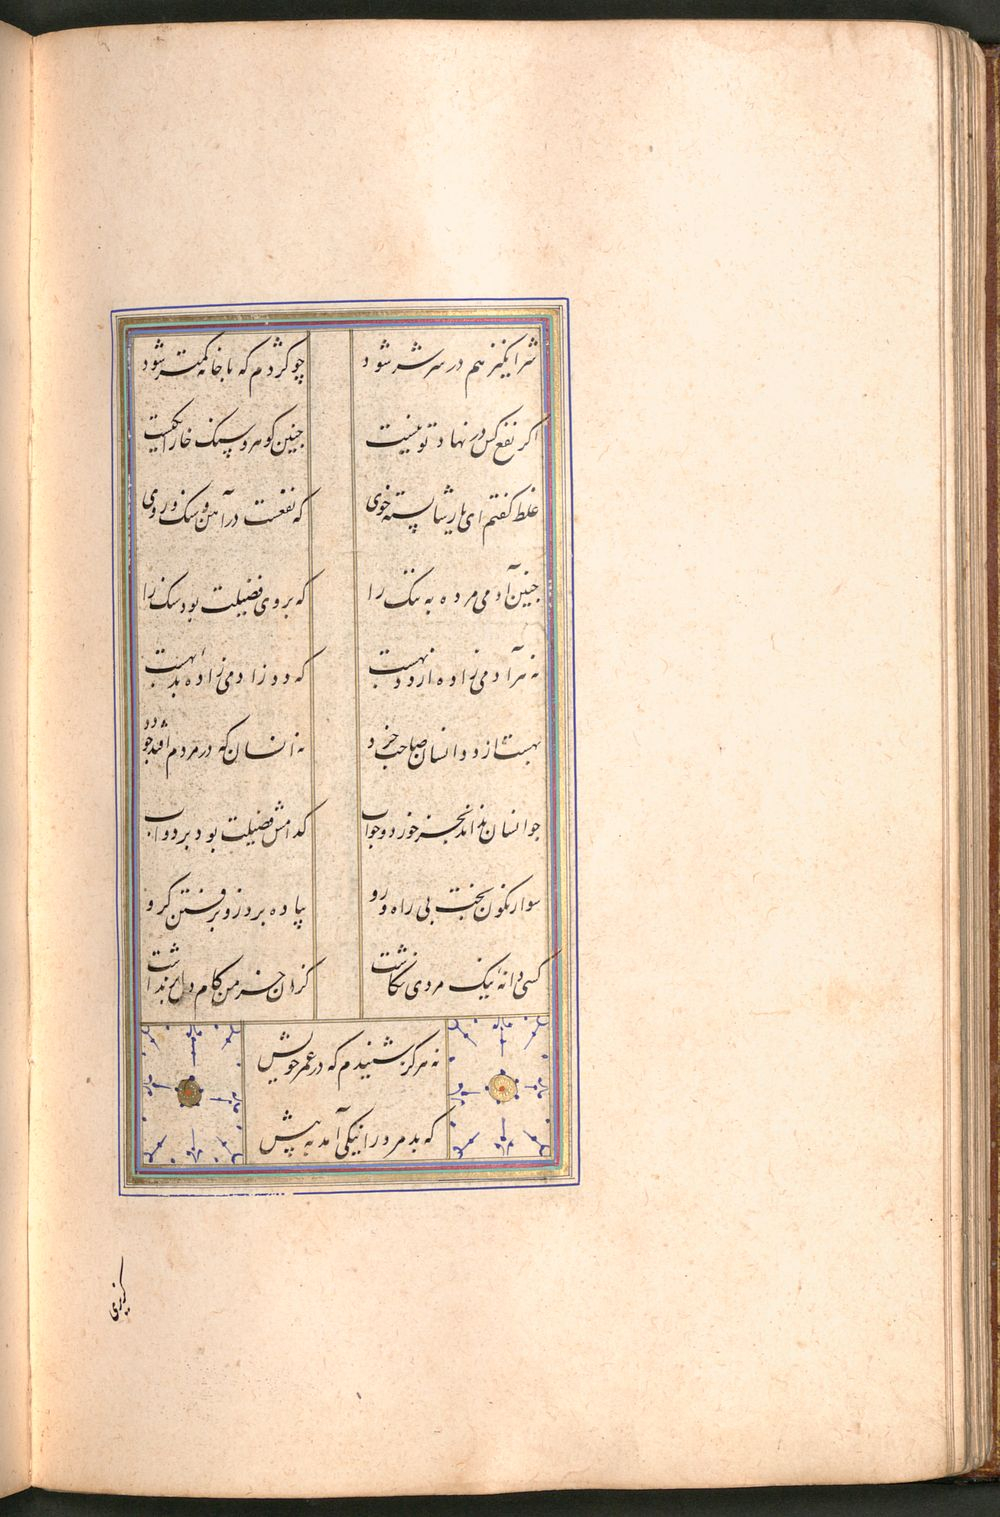 شر انگیز هم در سر شر شود چو کژدم که با خانه کمتر شود
اکر نفع کس در نهاد تو نیست چنین کوهر و سنک خارا یکیست
غلط کفتم ای یار شایسته خوی که نفعست در آهن و سنک و روی
چنین آدمی مرده به ننک را که بروی فضیلت بود سنک را
نه هر آدمی زاده از دد بهست که دد ز ادمی زاده بد بهست
بهست از دد انسان صاحب خرد نه انسان که در مردم افتد چو دد
چو انسان نداند بجز خورد و خواب کدامش فضیلت بود بر دواب
سوار نکون بخت بی راه رو پیاده برد زو برفتن کرو
کسی دانه نیک مردی نکاشت کزان خرمن کام دل برنداشت
نه هرکز شنیدم که در عمر خویش
که بد مرد را نیکی آمد به پیش